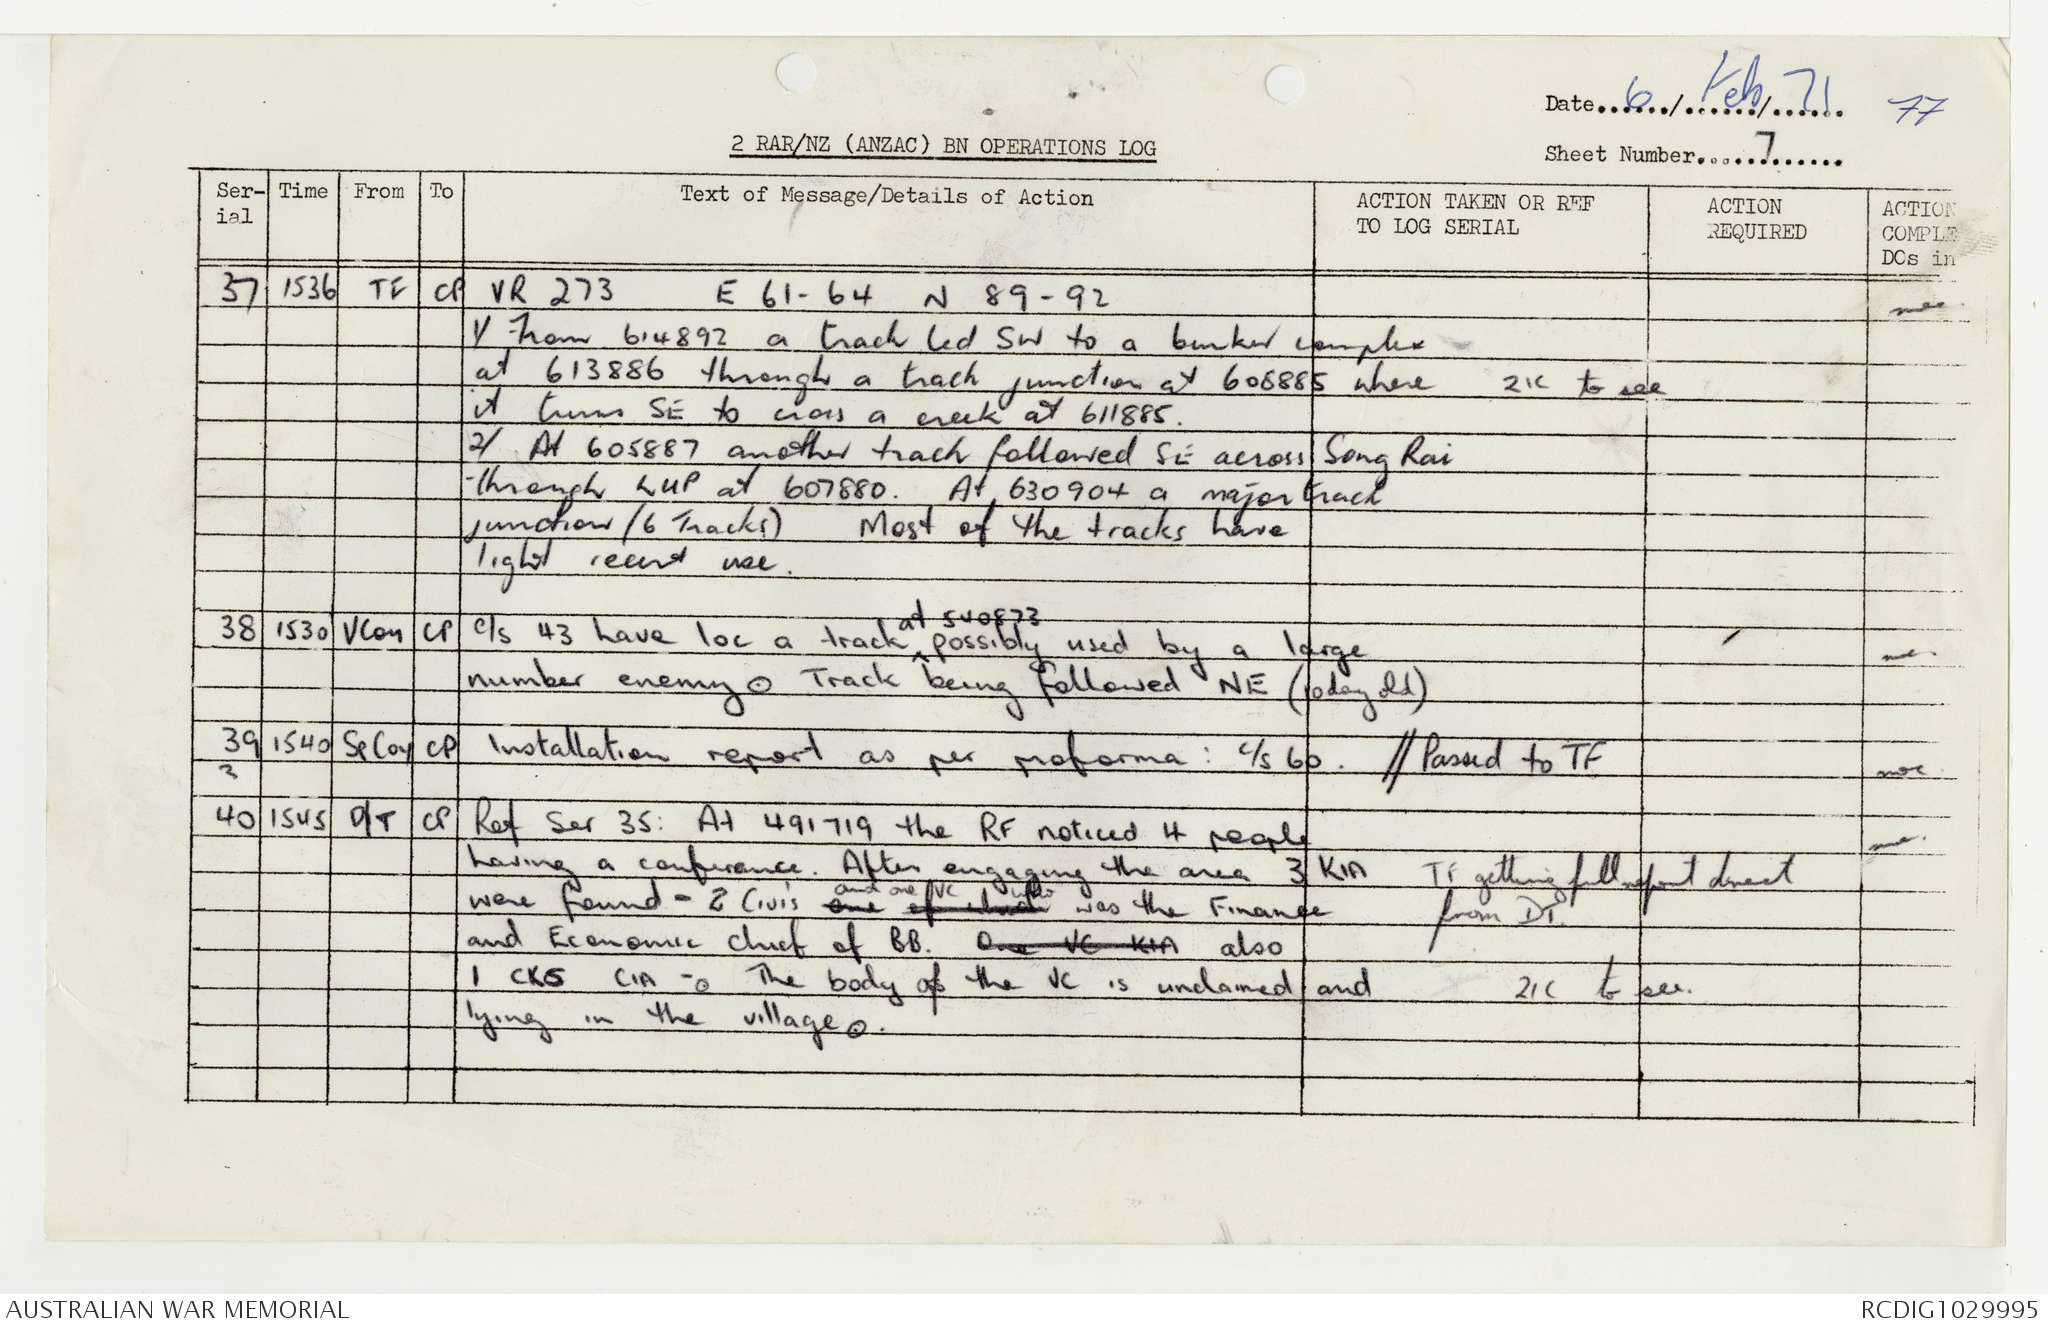 Date 6 / Feb / 71 77
2 RAR/NZ (ANZAC) BN OPERATIONS LOG
Sheet Number 7
Ser-ial Time From To Text of Message/Details of Action ACTION TAKEN OR REF TO LOG SERIAL ACTION REQUIRED ACTION COMPLE DOs in
37 1536 TF CP VR 273 E 61-64 N 89-92
1/ From 614892 a track led SW to a bunker complex
at 613886 through a track junction at 606885 where 2IC to see
it turns SE to cross a creek at 611885.
2/ At 605887 another track followed SE across Song Rai
through LUP at 607880. At 630904 a major track
junction (6 Tracks) Most of the tracks have
light recent use.
38 1530 VCoy CP C/S 43 have loc a track at 540873 possibly used by a large
number enemy. Track being followed NE (10 day old)
39 1540 SpCoy CP Installation report as per proforma: C/S 60. // Passed to TF
40 1545 D/T CP Ref Ser 35: At 491719 the RF noticed 4 people
having a conference. After engaging the area 3 KIA TF getting full report direct
were found - 2 Civis and one VC who was the Finance from DT.
and Economic chief of BB. One VC KIA also
1 CKS CIA - The body of the VC is unclaimed and 2IC to see.
lying in the village.
AUSTRALIAN WAR MEMORIAL RCDIG1029995